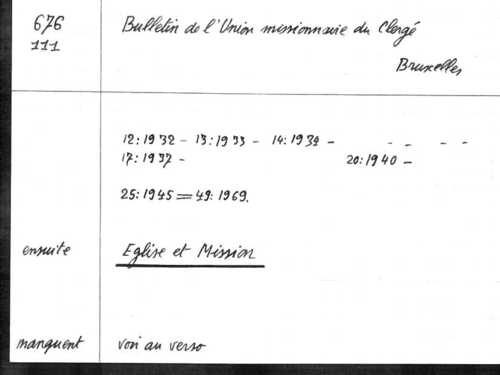 676 Bulletin de l'Union missionnaire du Clergé
111
Bruxelles
12:1932 - 13:1933 - 14:1934 - - - - -
17:1937 - 20:1940 -
25:1945 = 49:1969.
ensuite Eglise et Mission
manquent voir au verso